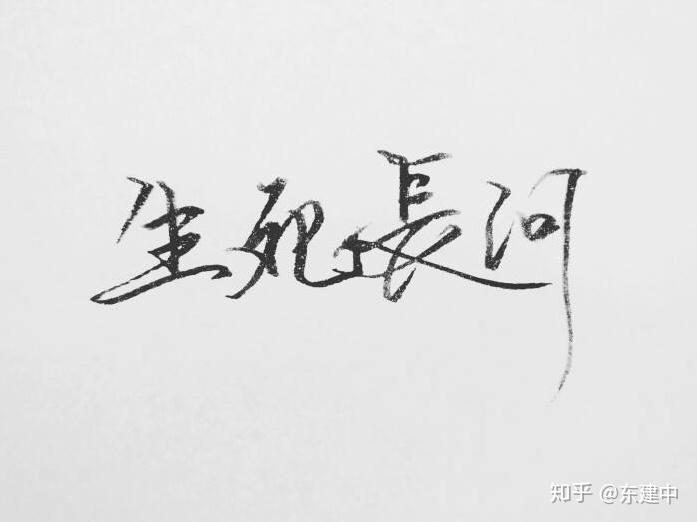 生死長河
知乎 @东建中